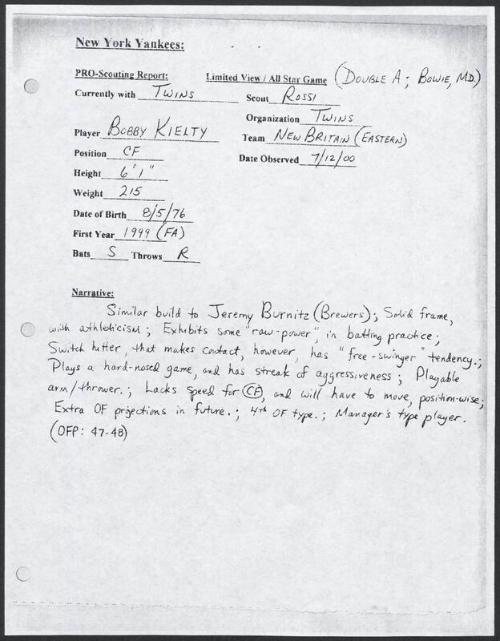 New York Yankees:
PRO-Scouting Report: Limited View / All Star Game (DOUBLE A; BOWIE, MD.)
Currently with TWINS Scout ROSSI
Organization TWINS
Player BOBBY KIELTY Team NEW BRITAIN (EASTERN)
Position CF Date Observed 7/12/00
Height 6'1"
Weight 215
Date of Birth 8/5/76
First Year 1999 (FA)
Bats S Throws R
Narrative:
Similar build to Jeremy Burnitz (Brewers); Solid frame,
with athleticism; Exhibits some "raw-power", in batting practice;
Switch hitter, that makes contact, however, has "free-swinger" tendency.;
Plays a hard-nosed game, and has streak of aggressiveness; Playable
arm/thrower.; Lacks speed for CF, and will have to move, position-wise;
Extra OF projections in future.; 4th OF type.; Manager's type player.
(OFP: 47-48)